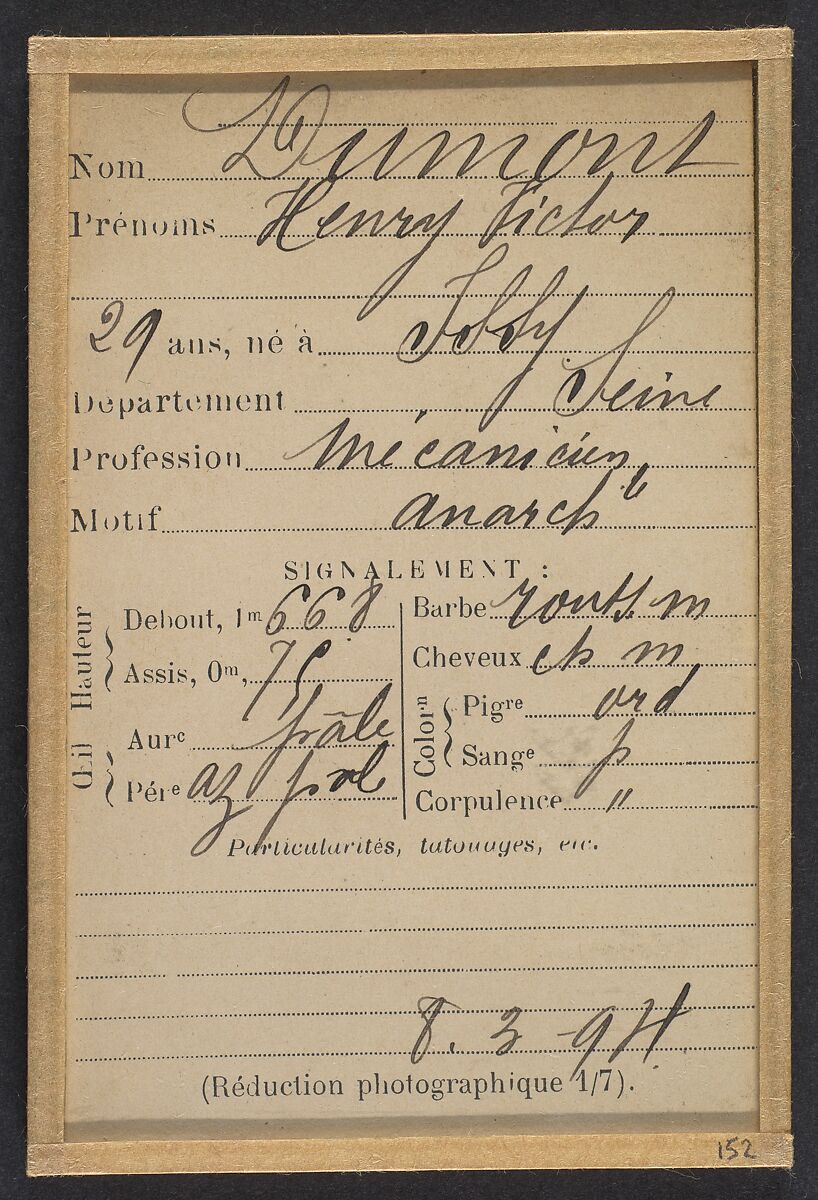 Nom Dumont
Prénoms Henry Victor
29 ans, né à Issy
Département Seine
Profession Mécanicien
Motif anarch^te
SIGNALEMENT :
Hauteur
Debout, 1m 668
Assis, 0m, 75
Œil
Aurᵉ pâle
Pérᵉ az pâl
Barbe m
Cheveux ch m
Colorⁿ
Pigʳᵉ ord
Sangᵉ p
Corpulence "
Particularités, tatouages, etc.
8. 3 - 94
(Réduction photographique 1/7).
152